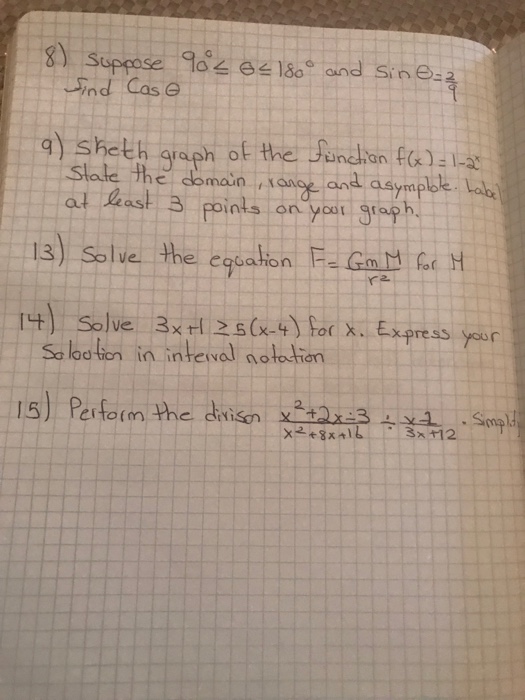 8) Suppose 90° ≤ θ ≤ 180° and Sin θ = 2/9
find Cos θ
9) Sketh graph of the function f(x) = 1-2^x
State the domain, range and asymptote. Label
at least 3 points on your graph.
13) Solve the equation F = GmM/r² for M
14) Solve 3x+1 ≥ 5(x-4) for x. Express your
Solootion in interval notation
15) Perform the divison (x²+2x-3)/(x²+8x+16) ÷ (x-1)/(3x+12).